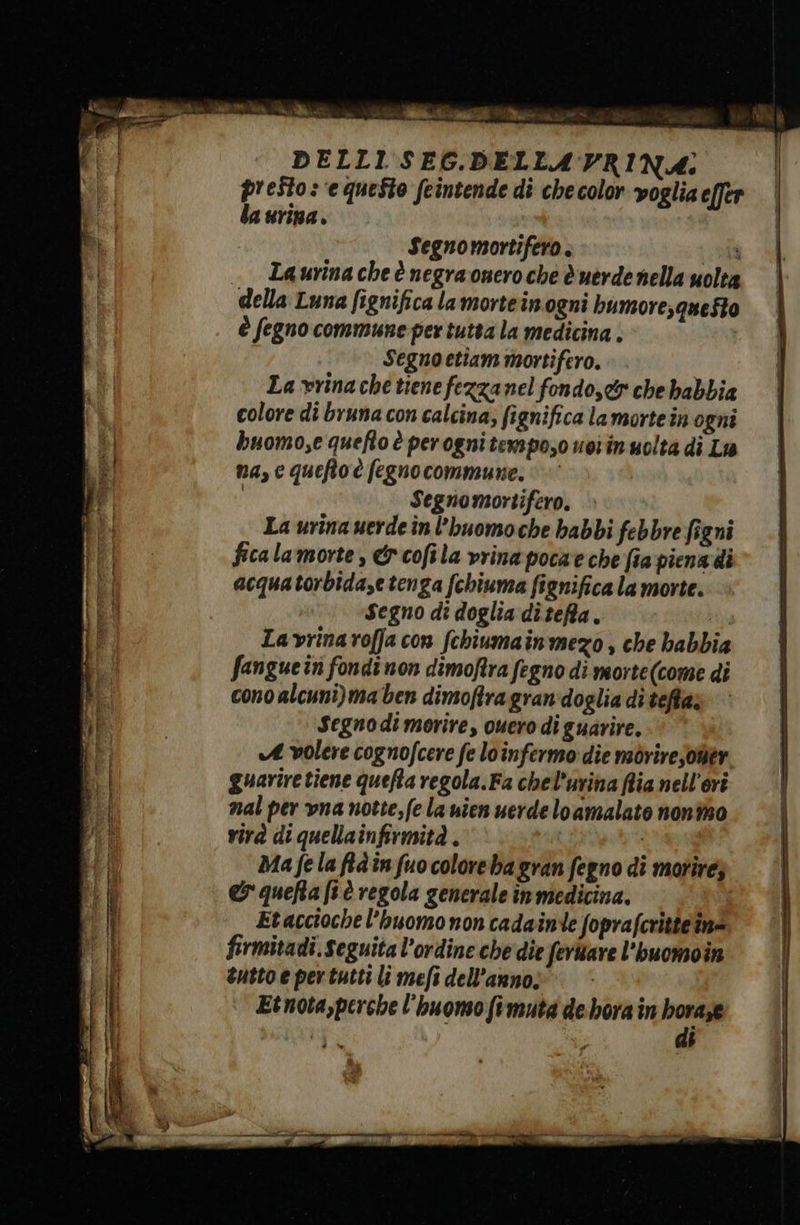 DELLI SEG.DELLA VRINA.
preſto: e queſto ſeintende di checolor voglia eſſer
la urina.
Segno mortifero.
La urina che è negra ouero che è uerde nella uolta
della Luna ſignifica la morte in ogni humore, queſto
è ſegno commune per tutta la medicina.
Segno etiam mortifero.
La vrina che tiene fezza nel fondo, & che habbia
colore di bruna con calcina, ſignifica la morte in ogni
huomo, e queſto è per ogni tempo, o uoi in uolta di Lu
na, e queſto è ſegno commune.
Segno mortifero.
La urina uerde in l'huomo che habbi febbre ſigni
fica la morte, & coſi la vrina poca e che ſia piena di
acqua torbida, e tenga ſchiuma ſignifica la morte.
Segno di doglia di teſta.
La vrina roſſa con ſchiuma in mezo, che habbia
ſangue in fondi non dimoſtra ſegno di morte (come di
cono alcuni) ma ben dimoſtra gran doglia di teſta.
Segno di morire, ouero di guarire.
A volere cognoſcere ſe lo infermo die morire, ouer
guarire tiene queſta regola. Fa che l'urina ſtia nell'ori
nal per vna notte, ſe la uien uerde lo amalato non mo
rirà di quella infirmità.
Ma ſe la ſtà in ſuo colore ha gran ſegno di morire,
& queſta ſi è regola generale in medicina.
Et accioche l'huomo non cada in le ſopraſcritte in=
firmitadi. Seguita l'ordine che die ſeruare l'huomo in
tutto e per tutti li meſi dell'anno.
Et nota, perche l'huomo ſi muta de hora in hora, e
di